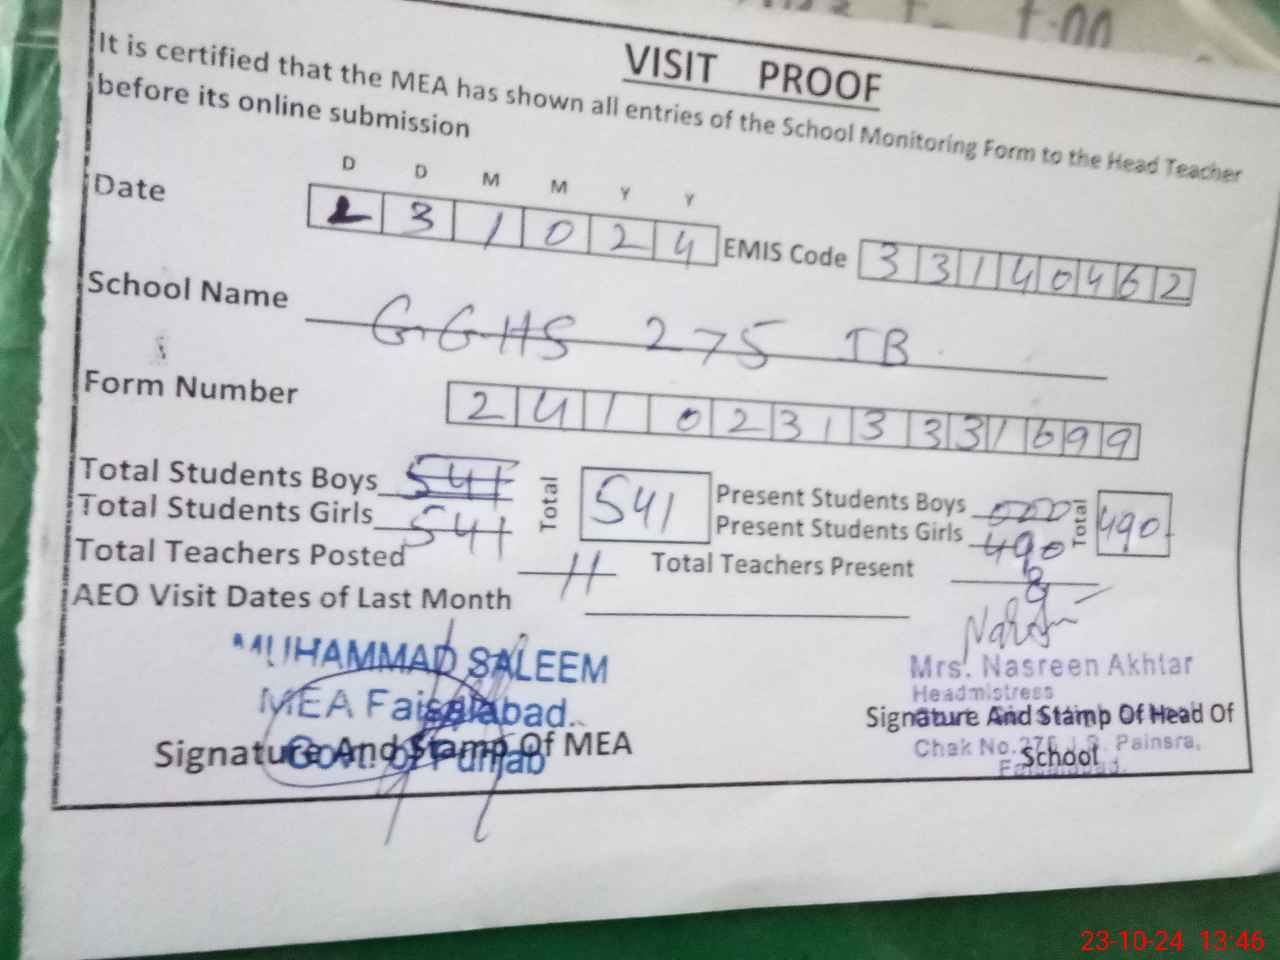 VISIT PROOF
It is certified that the MEA has shown all entries of the School Monitoring Form to the Head Teacher
before its online submission
D D M M Y Y
Date 2 3 1 0 2 4 EMIS Code 3 3 1 4 0 4 6 2
School Name GGHS 275 JB
Form Number 2 4 1 0 2 3 1 3 3 3 1 6 9 9
Total Students Boys 541 Total 541 Present Students Boys 000 Total 490
Total Students Girls 541 Present Students Girls 490
Total Teachers Posted 11 Total Teachers Present 8
AEO Visit Dates of Last Month
MUHAMMAD SALEEM
MEA Faisalabad.
Govt. of Punjab
Signature And Stamp Of MEA
Mrs. Nasreen Akhtar
Headmistress
Signature And Stamp Of Head Of
School
Chak No. 275 J.B. Painsra,
Faisalabad.
23-10-24 13:46